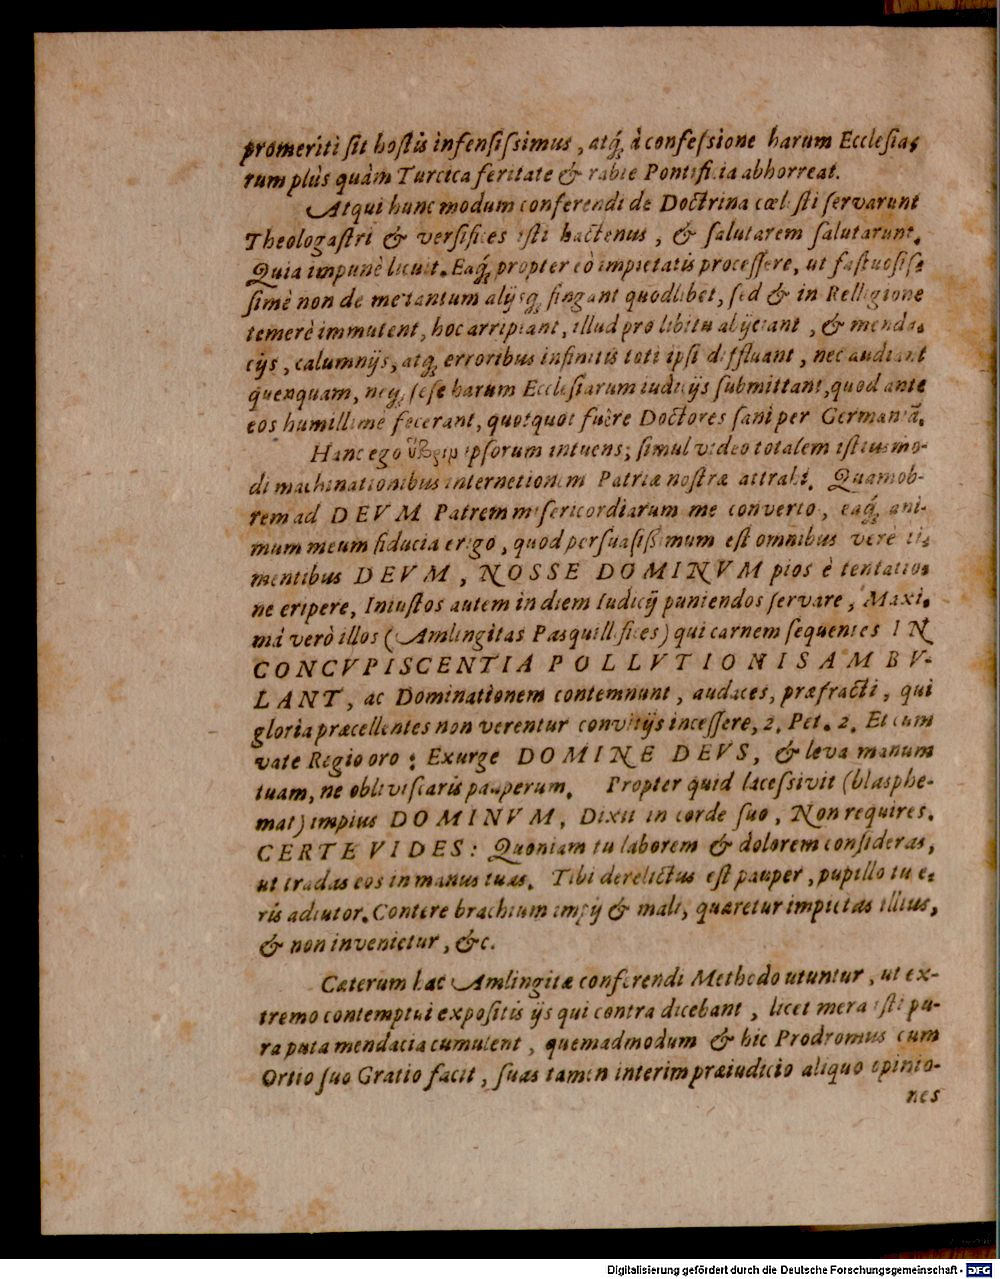 promeriti ſit hoſtis infenſiſsimus, atq́; à confeſsione harum Eccleſia⸗
rum plùs quàm Turcica feritate & rabie Pontificia abhorreat.
Atqui hunc modum conferendi de Doctrina cœleſti ſervarunt
Theologaſtri & verſifices iſti hactenus, & ſalutarem ſalutarunt.
Quia impunè licuit. Eaq́; propter eò impietatis proceſſere, ut faſtuoſiſ⸗
ſimè non de metantum alijsq; fingant quodlibet, ſed & in Relligione
temerè immutent, hoc arripiant, illud pro libitu abijciant, & menda⸗
cijs, calumnijs, atq; erroribus infinitis toti ipſi diffluant, nec audiant
quenquam, neq; ſeſe harum Eccleſiarum iudicijs ſubmittant, quod ante
eos humillimè fecerant, quotquot fuêre Doctores ſani per Germaniã.
Hanc ego ὕβριμ ipſorum intuens; ſimul video totalem iſtiusmo-
di machinationibus internetionem Patriæ noſtræ attrahi. Quamob-
rem ad DEVM Patrem miſericordiarum me converto, eaq́; ani-
mum meum fiducia erigo, quod perſuaſiſſimum eſt omnibus verè ti⸗
mentibus DEVM, NOSSE DOMINVM pios è tentatio⸗
ne eripere, Iniuſtos autem in diem Iudicij puniendos ſervare, Maxi⸗
mà verò illos (Amlingitas Pasquillifices) qui carnem ſequentes IN
CONCVPISCENTIA POLLVTIONIS AMBV-
LANT, ac Dominationem contemnunt, audaces, præfracti, qui
gloria præcellentes non verentur convitijs inceſſere, 2. Pet. 2. Et cum
vate Regio oro: Exurge DOMINE DEVS, & leva manum
tuam, ne obliviſcaris pauperum. Propter quid laceſsivit (blasphe-
mat) impius DOMINVM, Dixit in corde ſuo, Non requires.
CERTE VIDES: Quoniam tu laborem & dolorem conſideras,
ut tradas eos in manus tuas. Tibi derelictus eſt pauper, pupillo tu e⸗
ris adiutor. Contere brachium impij & mali, quæretur impietas illius,
& non invenietur, &c.
Cæterum hac Amlingitæ conferendi Methodo utuntur, ut ex-
tremo contemptui expoſitis ijs qui contra dicebant, licet mera iſti pu-
ra puta mendacia cumulent, quemadmodum & hic Prodromus cum
Ortio ſuo Gratio facit, ſuas tamen interim præiudicio aliquo opinio-
nes
Digitalisierung gefördert durch die Deutsche Forschungsgemeinschaft - DFG